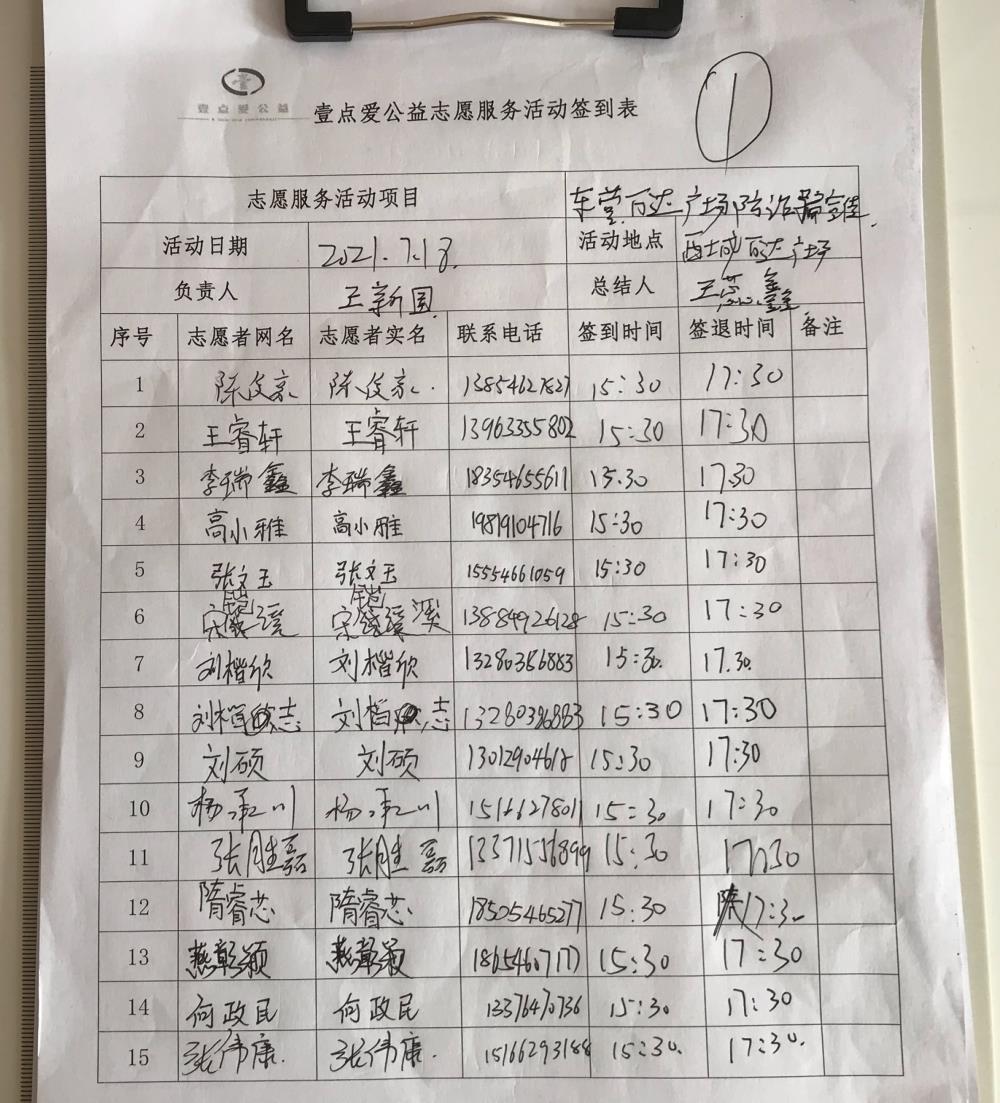 壹点爱公益
壹点爱公益志愿服务活动签到表
1
志愿服务活动项目 东营万达广场防诈骗宣传
活动日期 2021.7.18. 活动地点 西城万达广场
负责人 王新国 总结人 王蕊鑫
序号 志愿者网名 志愿者实名 联系电话 签到时间 签退时间 备注
1 陈俊豪 陈俊豪. 13854627827 15:30 17:30
2 王睿轩 王睿轩 13963355802 15:30 17:30
3 李瑞鑫 李瑞鑫 18354655611 15.30 17.30
4 高小雅 高小雅 19819104716 15:30 17:30
5 张文玉 张文玉 15554661059 15:30 17:30
6 15:30 17:30
7 刘楷欣 刘楷欣 13280386883 15:30. 17.30.
8 刘楷志 刘楷志 13280386883 15:30 17:30
9 刘硕 刘硕 13012904618 15:30 17:30
10 杨承川 杨承川 15161278011 15:30 17:30
11 张胜磊 张胜磊 13371556899 15:30 17:30
12 隋睿芯 隋睿芯 18505465277 15:30 17:30
13 燕彰颖 燕彰颖 18654607177 15:30 17:30
14 何政民 何政民 13376470736 15:30 17:30
15 张伟康. 张伟康. 15166293188 15:30. 17:30.